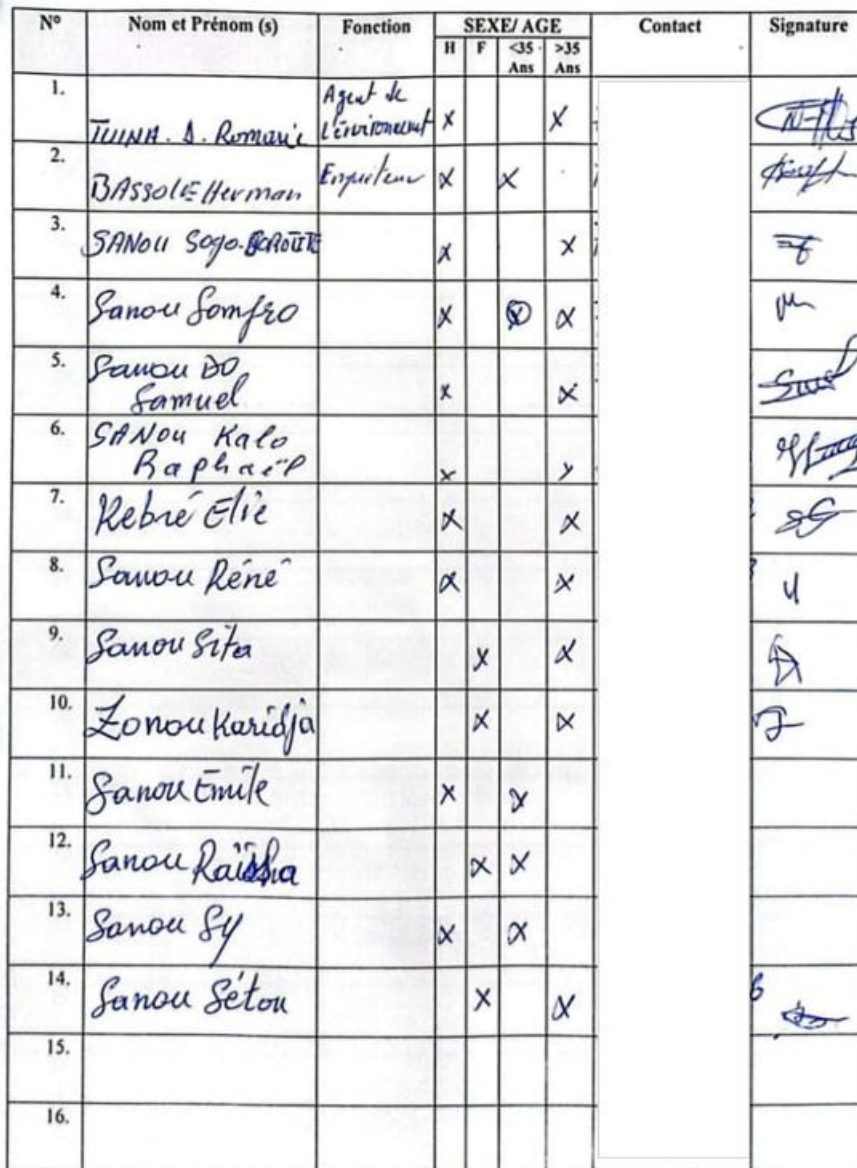 N° Nom et Prénom (s) Fonction SEXE/ AGE Contact Signature
H F <35 Ans >35 Ans
1. TUINA. D. Romaric Agent de l'environnement X X
2. BASSOLE Herman Enquêteur X X
3. SANOU Sogo- X X
4. Sanou Somfro X X X
5. Sanou DO
Samuel X X
6. SANOU Kalo
Raphaël X X
7. Kebré Elie X X
8. Sanou Réné X X
9. Sanou Sita X X
10. Zonou Karidja X X
11. Sanou Emile X X
12. Sanou X X
13. Sanou Sy X X
14. Sanou Sétou X X
15.
16.